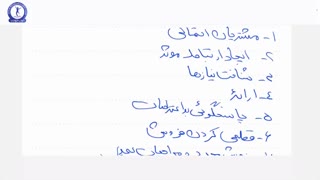 ۱- مشتریان احتمالی
۲- ایجاد ارتباط موثر
۳- شناخت نیازها
۴- ارائه
۵- پاسخگوئی به اعتراضات
۶- قطعی کردن فروش